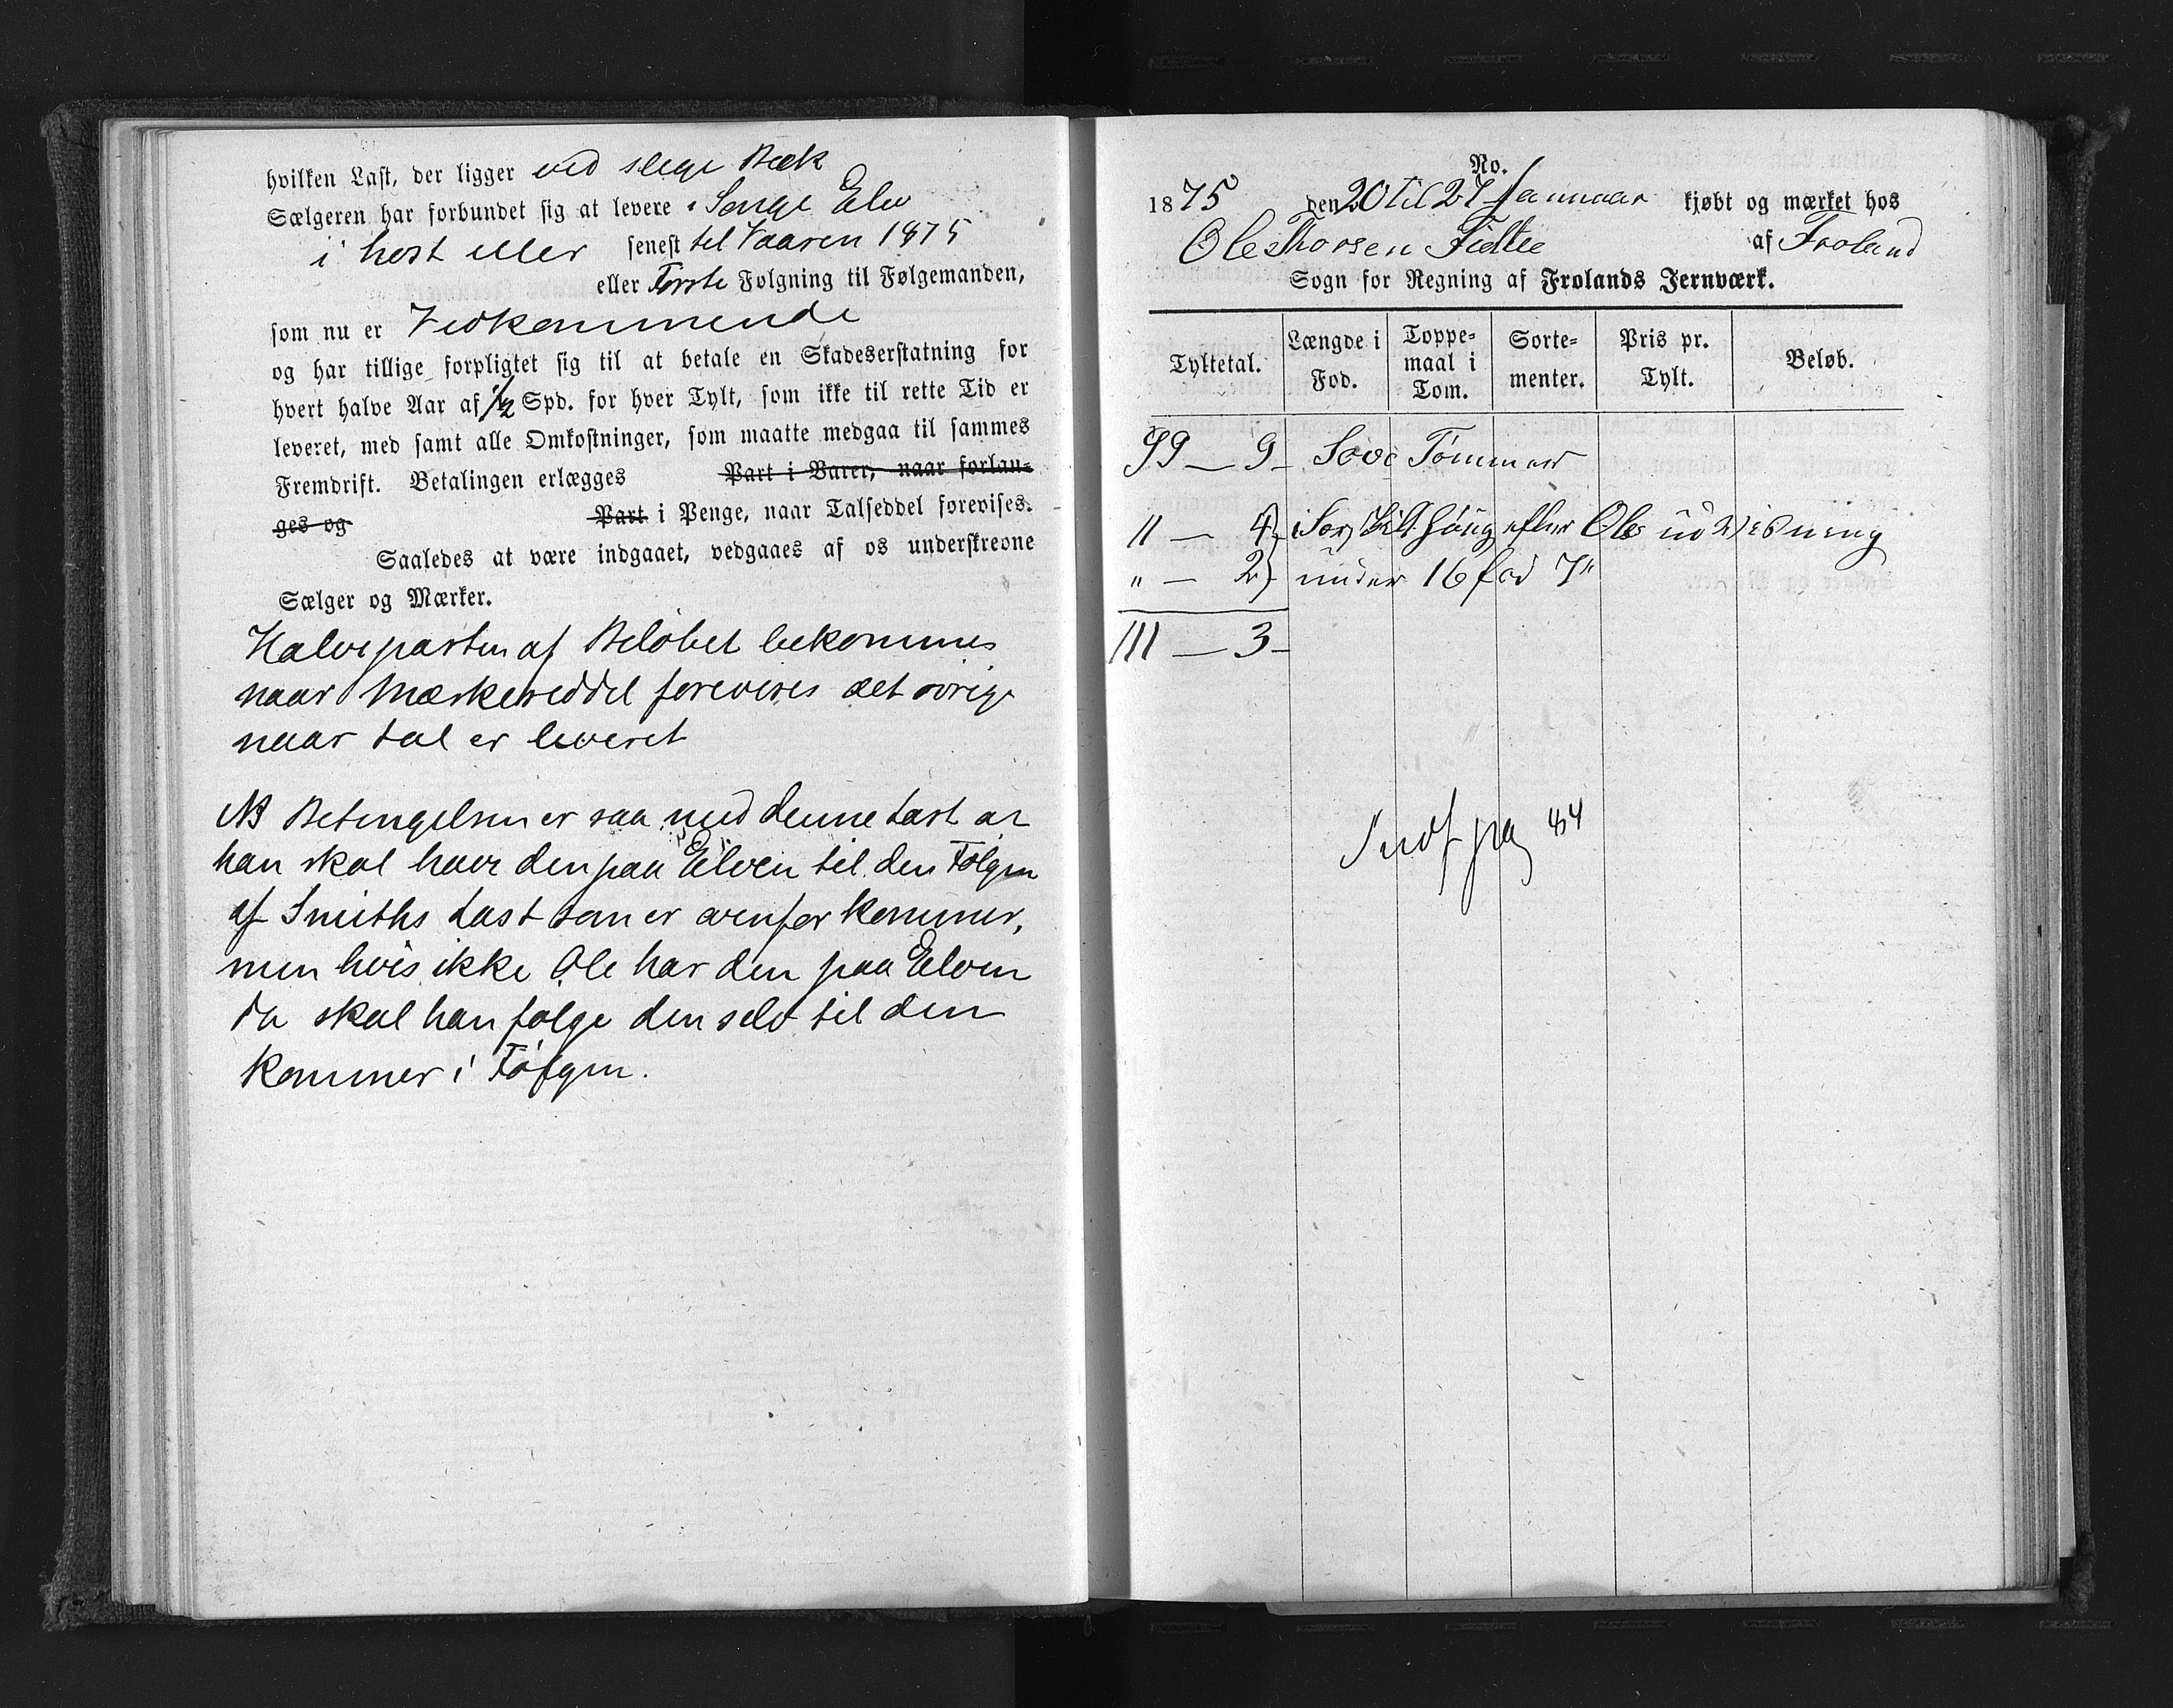 hvilken Last, der ligger ved slege Bæk
Sælgeren har forbundet sig at levere i Songe Elv
i høst eller senest til Vaaren 1875
eller Første Folgning til Følgemanden,
som nu er Vedkommende
og har tillige forpligtet sig til at betale en Skadeserstatning for
hvert halve Aar af 1/2 Spd. for hver Tylt, som ikke til rette Tid er
leveret, med samt alle Omkostninger, som maatte medgaa til sammes
Fremdrift. Betalingen erlægges Part i Varer, naar forlan-
ges og Part i Penge, naar Talseddel forevises.
Saaledes at være indgaaet, vedgaaes af os underskrevne
Sælger og Mærker.
Halveparten af Beløbet bekommes
naar Mærkeseddel forevises det øvrige
naar tal er leveret
NB Betingelsen er saa med denne Last at
han skal have den paa Elven til den Følgen
af Smiths Last som er ovenfor kommer,
men hvis ikke Ole har den paa Elven
da skal han følge den selv til den
kommer i Følgen.
No.
1875 den 20 til 27 Januar kjøbt og mærket hos
Ole Thorsen af Froland
Sogn for Regning af Frolands Jernværk.
Tyltetal. Længde i Fod. Toppe-maal i Tom. Sorte-menter. Pris pr. Tylt. Beløb.
99 — 9 - Tømmer
11 — 4 efter Ole udvisning
" — 2 under 16 fod 7"
111 — 3 -
Indf pag 44